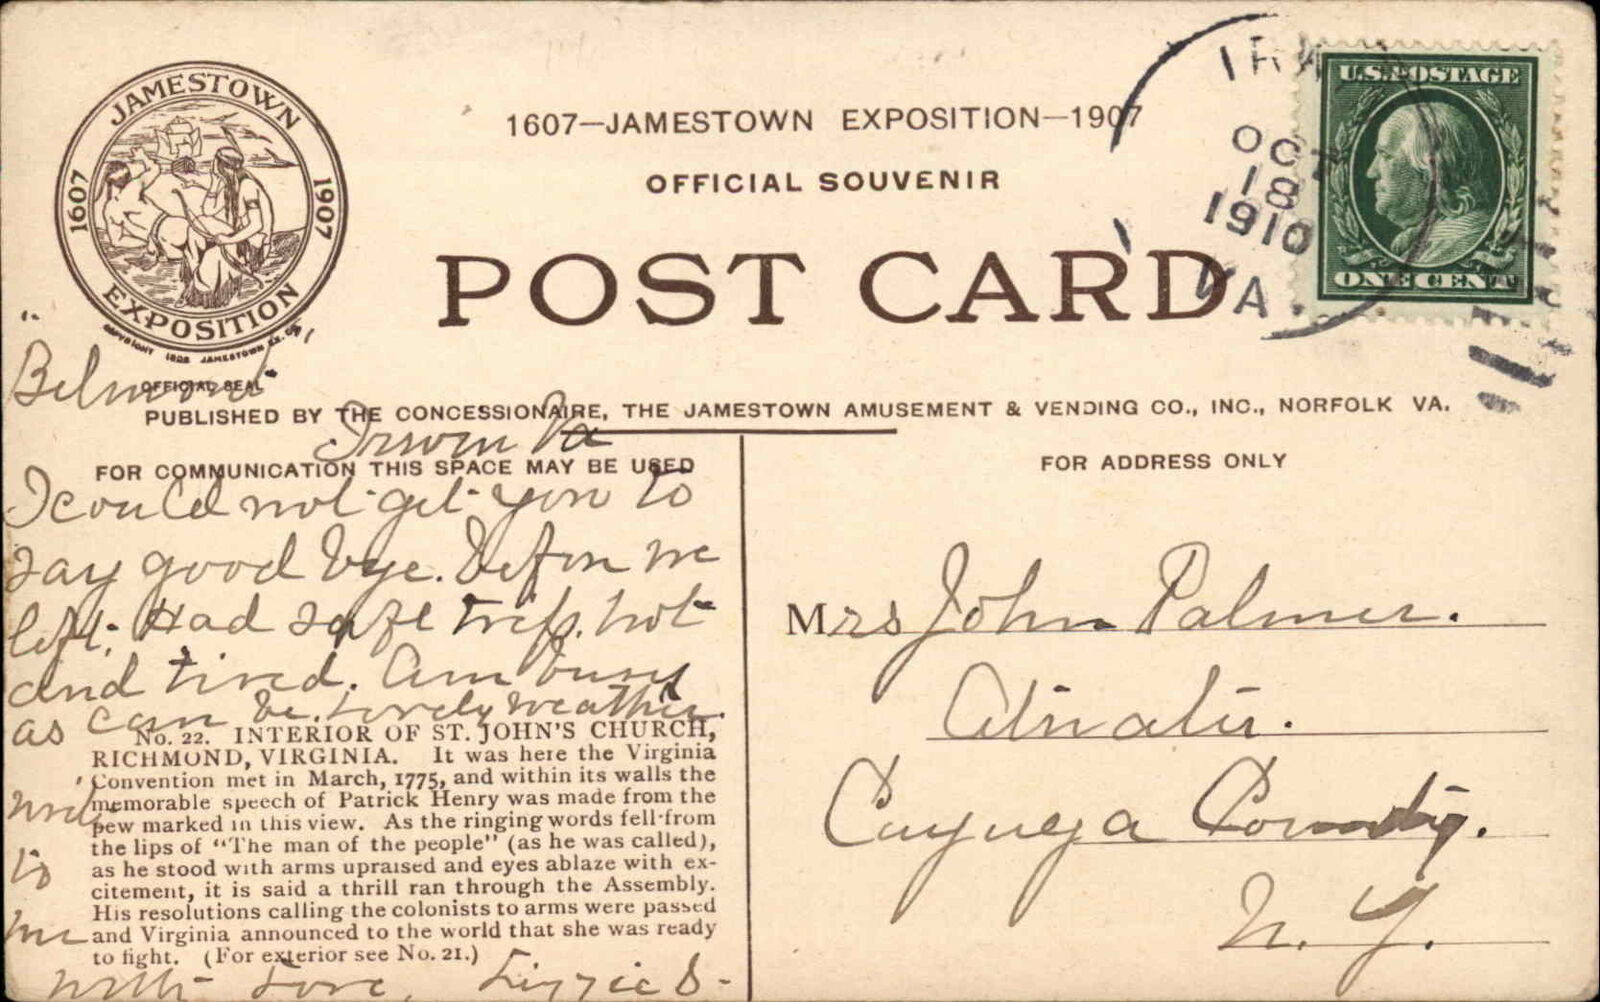 JAMESTOWN
1607
1907
EXPOSITION
COPYRIGHT 1905 JAMESTOWN EX. CO.
OFFICIAL SEAL
1607—JAMESTOWN EXPOSITION—1907
OFFICIAL SOUVENIR
POST CARD
OCT
18
1910
VA.
U.S. POSTAGE
ONE CENT
PUBLISHED BY THE CONCESSIONAIRE, THE JAMESTOWN AMUSEMENT & VENDING CO., INC., NORFOLK VA.
FOR COMMUNICATION THIS SPACE MAY BE USED
"Belmont"
Irwin Va
I could not get you to
say good bye. Before we
left. Had safe trip. hot
and tired. Am busy
as can be. Lovely weather.
write
to
me
With Love, Lizzie S-
No. 22. INTERIOR OF ST. JOHN'S CHURCH,
RICHMOND, VIRGINIA. It was here the Virginia
Convention met in March, 1775, and within its walls the
memorable speech of Patrick Henry was made from the
pew marked in this view. As the ringing words fell from
the lips of "The man of the people" (as he was called),
as he stood with arms upraised and eyes ablaze with ex-
citement, it is said a thrill ran through the Assembly.
His resolutions calling the colonists to arms were passed
and Virginia announced to the world that she was ready
to fight. (For exterior see No. 21.)
FOR ADDRESS ONLY
Mrs John Palmer.
Cayuga County.
N. Y.